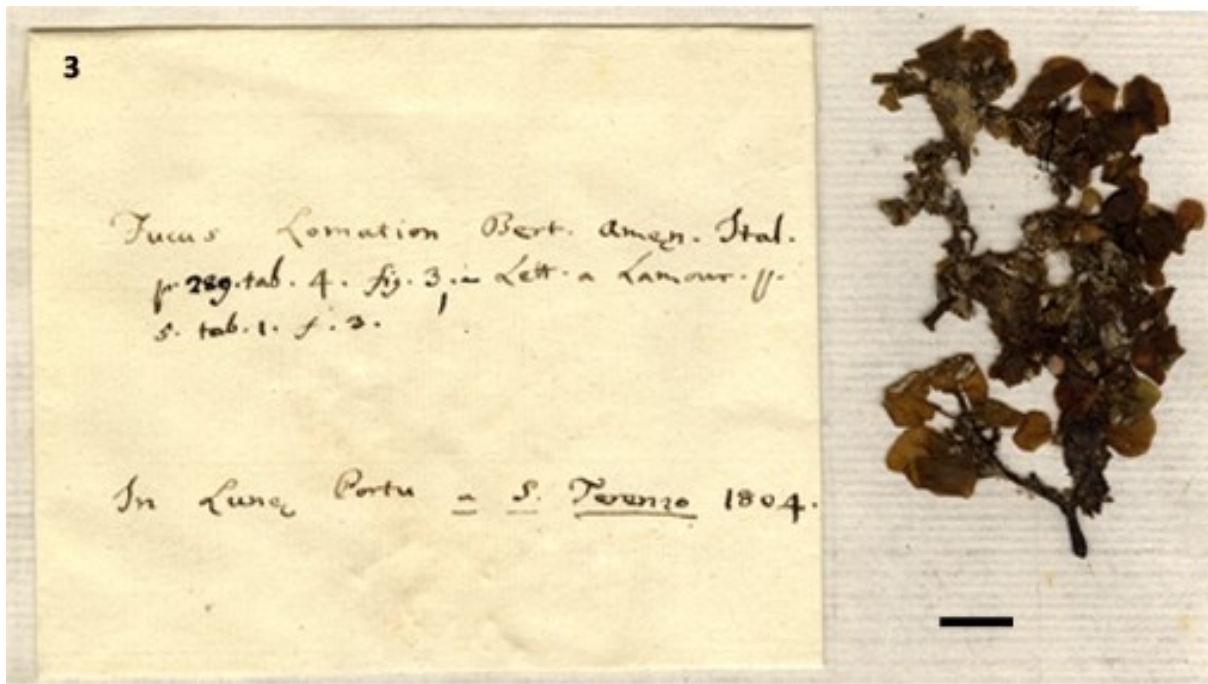 3
Fucus Lomation Bert. Amęn. Ital.
p. 289. tab. 4. fig. 3, Lett. a Lamour. p.
5. tab. 1. f. 3.
In Lunę Portu a S. Terenzo 1804.